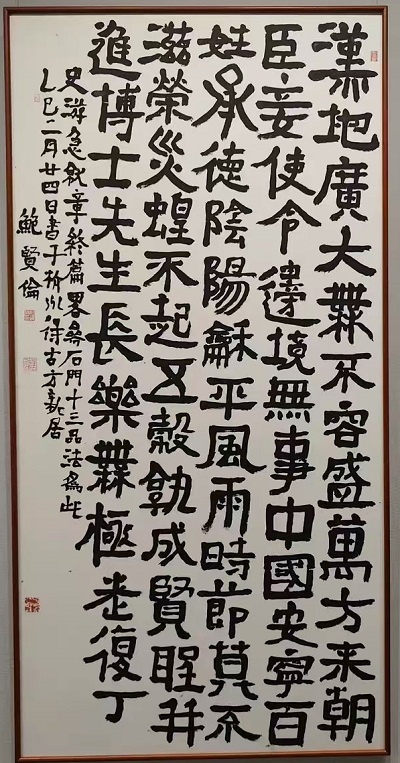 漢地廣大橆不容盛萬方来朝
臣妾使令邊境無事中國安寧百
姓承德陰陽龢平風雨時節莫不
滋榮災蝗不起五穀孰成賢聖并
進博士先生長樂橆極老復丁
史游急就章終篇畧參石門十三品法為此
乙巳二月廿四日書于杭州得古方新居
鮑賢倫